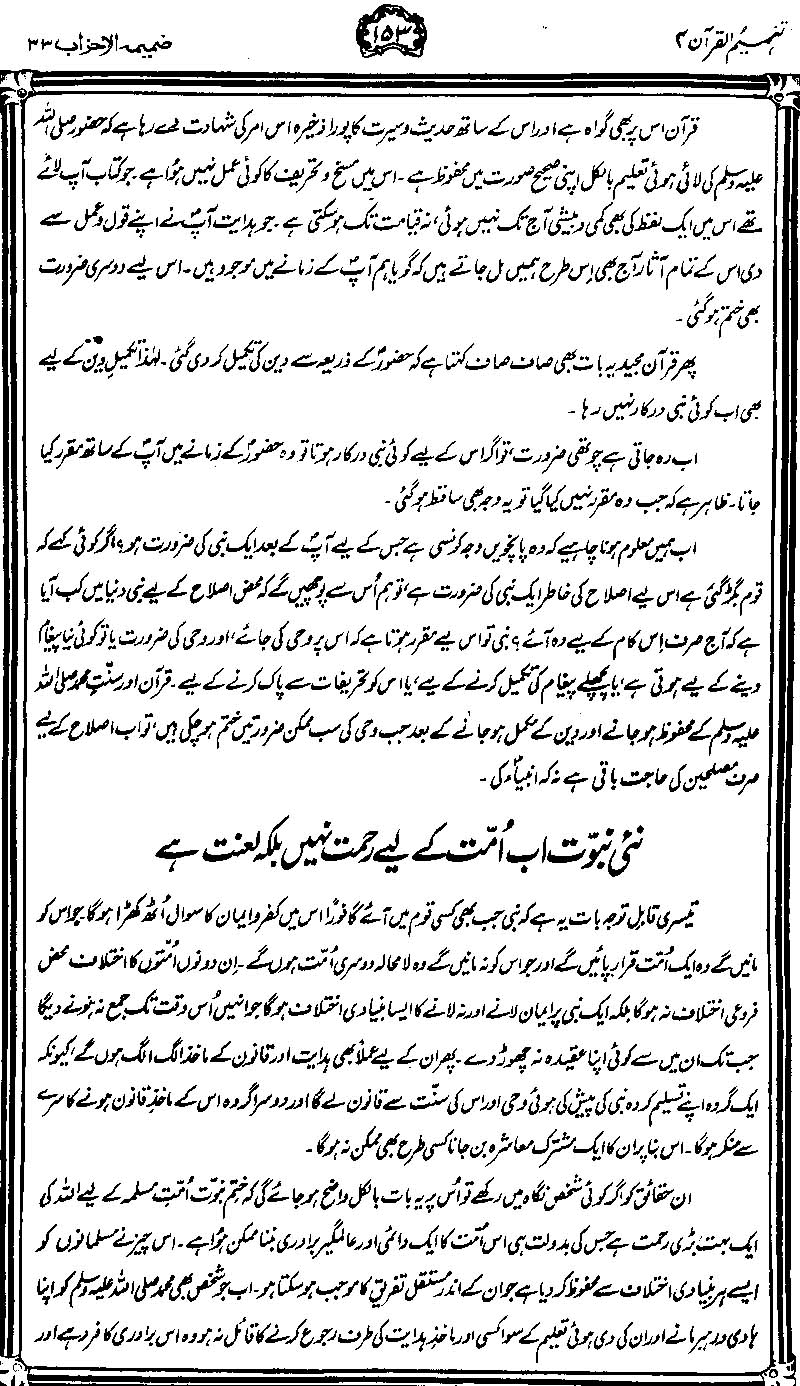 تفہیم القرآن ۴
۱۵۳
ضمیمہ الاحزاب ۳۳
قرآن اس پر بھی گواہ ہے اور اس کے ساتھ حدیث و سیرت کا پورا ذخیرہ اس امر کی شہادت دے رہا ہے کہ حضور صلی اللہ
علیہ وسلم کی لائی ہوئی تعلیم بالکل اپنی صحیح صورت میں محفوظ ہے۔ اس میں مسخ و تحریف کا کوئی عمل نہیں ہوا ہے۔ جو کتاب آپ لائے
تھے اس میں ایک لفظ کی بھی کمی و بیشی آج تک نہیں ہوئی، نہ قیامت تک ہو سکتی ہے۔ جو ہدایت آپؐ نے اپنے قول و عمل سے
دی اس کے تمام آثار آج بھی اِس طرح ہمیں مل جاتے ہیں کہ گویا ہم آپؐ کے زمانے میں موجود ہیں۔ اس لیے دوسری ضرورت
بھی ختم ہو گئی۔
پھر قرآن مجید یہ بات بھی صاف صاف کہتا ہے کہ حضورؐ کے ذریعہ سے دین کی تکمیل کر دی گئی۔ لہٰذا تکمیلِ دین کے لیے
بھی اب کوئی نبی درکار نہیں رہا۔
اب رہ جاتی ہے چوتھی ضرورت، تو اگر اس کے لیے کوئی نبی درکار ہوتا تو وہ حضورؐ کے زمانے میں آپؐ کے ساتھ مقرر کیا
جاتا۔ ظاہر ہے کہ جب وہ مقرر نہیں کیا گیا تو یہ وجہ بھی ساقط ہو گئی۔
اب ہمیں معلوم ہونا چاہیے کہ وہ پانچویں وجہ کونسی ہے جس کے لیے آپؐ کے بعد ایک نبی کی ضرورت ہو؟ اگر کوئی کہے کہ
قوم بگڑ گئی ہے اس لیے اصلاح کی خاطر ایک نبی کی ضرورت ہے، تو ہم اُس سے پوچھیں گے کہ محض اصلاح کے لیے نبی دنیا میں کب آیا
ہے کہ آج صرف اِس کام کے لیے وہ آئے؟ نبی تو اس لیے مقرر ہوتا ہے کہ اس پر وحی کی جائے، اور وحی کی ضرورت یا تو کوئی نیا پیغام
دینے کے لیے ہوتی ہے، یا پچھلے پیغام کی تکمیل کرنے کے لیے، یا اس کو تحریفات سے پاک کرنے کے لیے۔ قرآن اور سنتِ محمد صلی اللہ
علیہ وسلم کے محفوظ ہو جانے اور دین کے مکمل ہو جانے کے بعد جب وحی کی سب ممکن ضرورتیں ختم ہو چکی ہیں، تو اب اصلاح کے لیے
صرف مصلحین کی حاجت باقی ہے نہ کہ انبیاءؑ کی۔
نئی نبوّت اب اُمّت کے لیے رحمت نہیں بلکہ لعنت ہے
تیسری قابل توجہ بات یہ ہے کہ نبی جب بھی کسی قوم میں آئے گا فوراً اس میں کفر و ایمان کا سوال اُٹھ کھڑا ہوگا۔ جو اس کو
مانیں گے وہ ایک اُمّت قرار پائیں گے اور جو اس کو نہ مانیں گے وہ لامحالہ دوسری اُمّت ہوں گے۔ اِن دونوں اُمّتوں کا اختلاف محض
فروعی اختلاف نہ ہوگا بلکہ ایک نبی پر ایمان لانے اور نہ لانے کا ایسا بنیادی اختلاف ہوگا جو انہیں اُس وقت تک جمع نہ ہونے دیگا
جب تک ان میں سے کوئی اپنا عقیدہ نہ چھوڑ دے۔ پھر ان کے لیے عملاً بھی ہدایت اور قانون کے ماخذ الگ الگ ہوں گے، کیونکہ
ایک گروہ اپنے تسلیم کردہ نبی کی پیش کی ہوئی وحی اور اس کی سنّت سے قانون لے گا اور دوسرا گروہ اس کے ماخذِ قانون ہونے کا سرے
سے منکر ہوگا۔ اس بنا پر ان کا ایک مشترک معاشرہ بن جانا کسی طرح بھی ممکن نہ ہوگا۔
ان حقائق کو اگر کوئی شخص نگاہ میں رکھے تو اُس پر یہ بات بالکل واضح ہو جائے گی کہ ختمِ نبوّت اُمّتِ مسلمہ کے لیے اللہ کی
ایک بہت بڑی رحمت ہے جس کی بدولت ہی اس اُمّت کا ایک دائمی اور عالمگیر برادری بننا ممکن ہوا ہے۔ اس چیز نے مسلمانوں کو
ایسے ہر بنیادی اختلاف سے محفوظ کر دیا ہے جو ان کے اندر مستقل تفریق کا موجب ہو سکتا ہو۔ اب جو شخص بھی محمد صلی اللہ علیہ وسلم کو اپنا
ہادی و رہبر مانے اور ان کی دی ہوئی تعلیم کے سوا کسی اور ماخذِ ہدایت کی طرف رجوع کرنے کا قائل نہ ہو وہ اس برادری کا فرد ہے اور